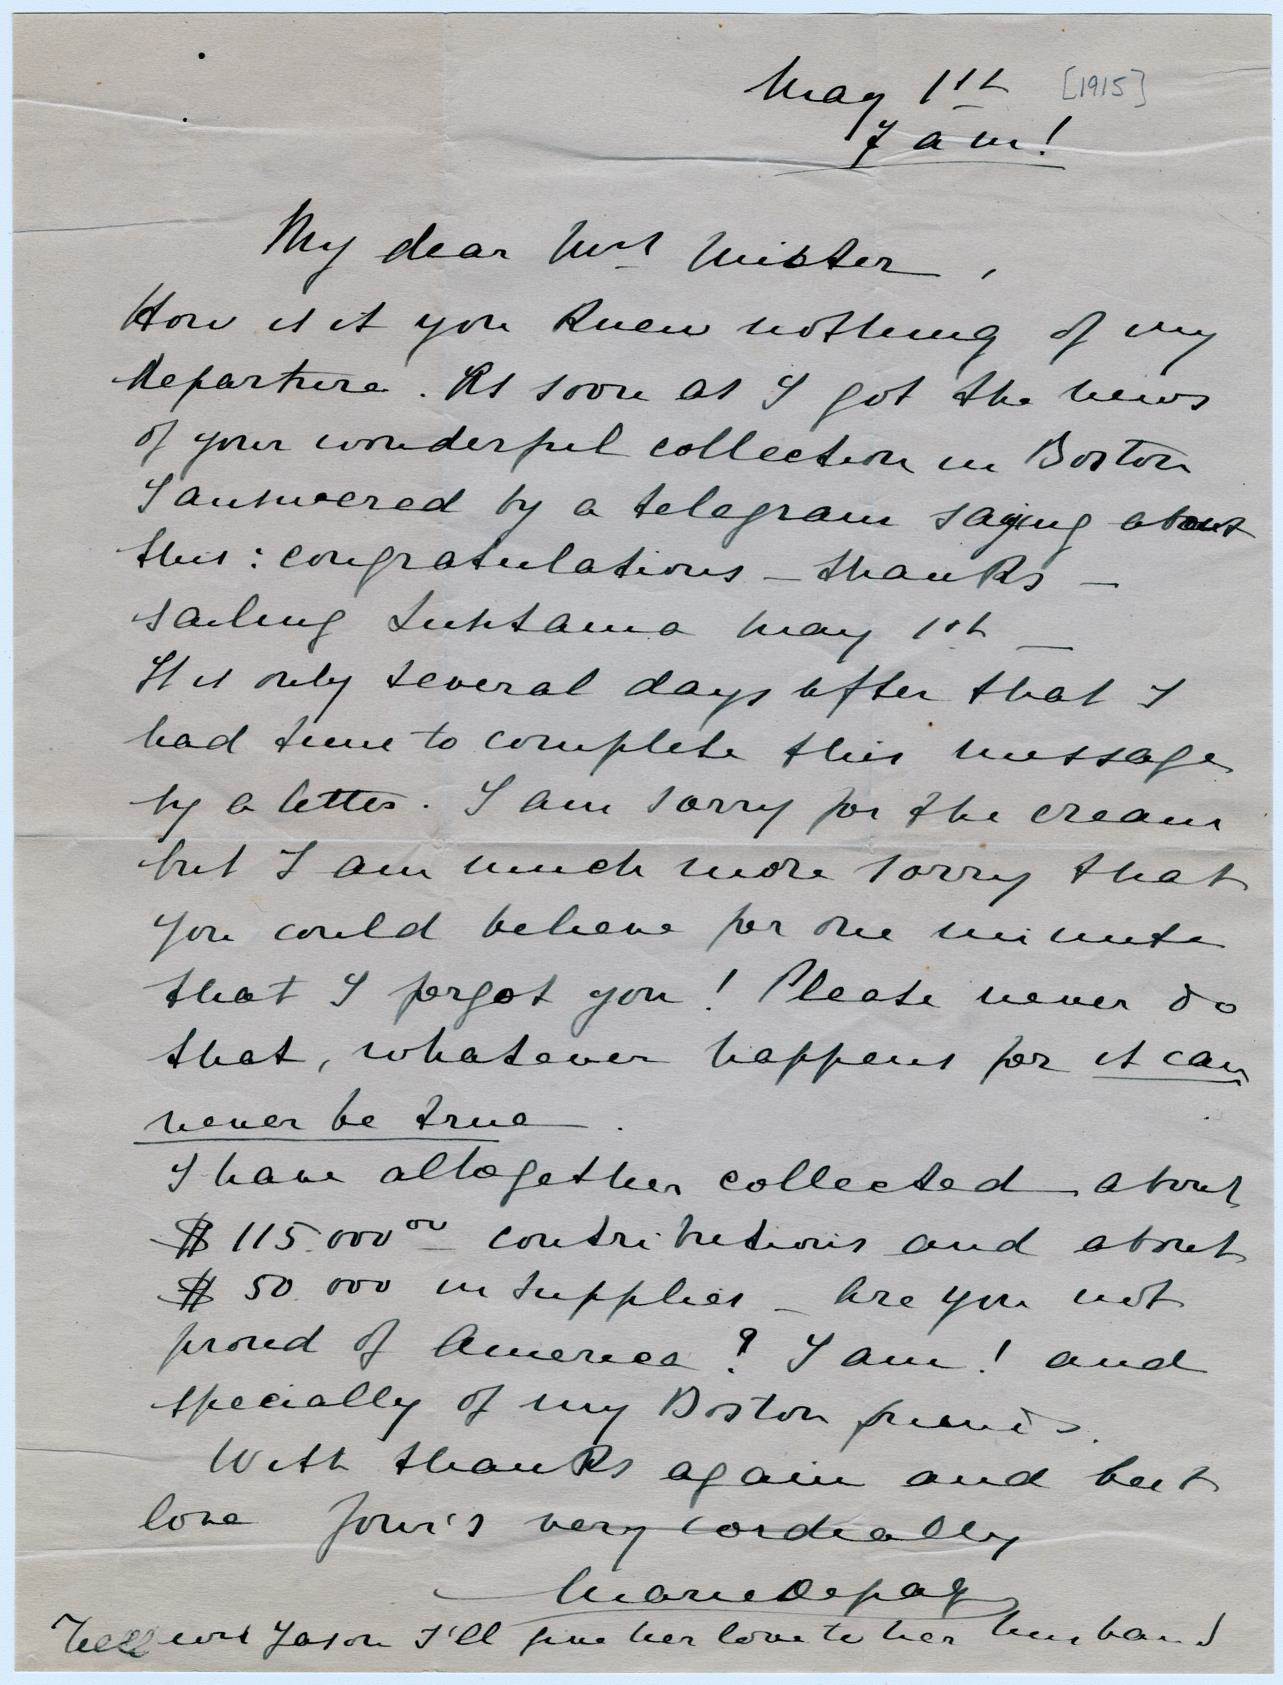 May 1st [1915]
7 am!
My dear Mrs Mixter,
How is it you knew nothing of my
departure. As soon as I got the news
of your wonderful collection in Boston
I answered by a telegram saying about
this: congratulations – thanks –
sailing Lusitania May 1st –
It is only several days after that I
had time to complete this message
by a letter. I am sorry for the cream
but I am much more sorry that
you could believe for one minute
that I forgot you! Please never do
that, whatever happens for it can
never be true.
I have altogether collected about
$ 115.000 00 contributions and about
$ 50 000 in supplies – Are you not
proud of America? I am! and
specially of my Boston friends.
With thanks again and best
love Your's very cordially
Marie Depage
Tell Mrs I'll give her love to her husband